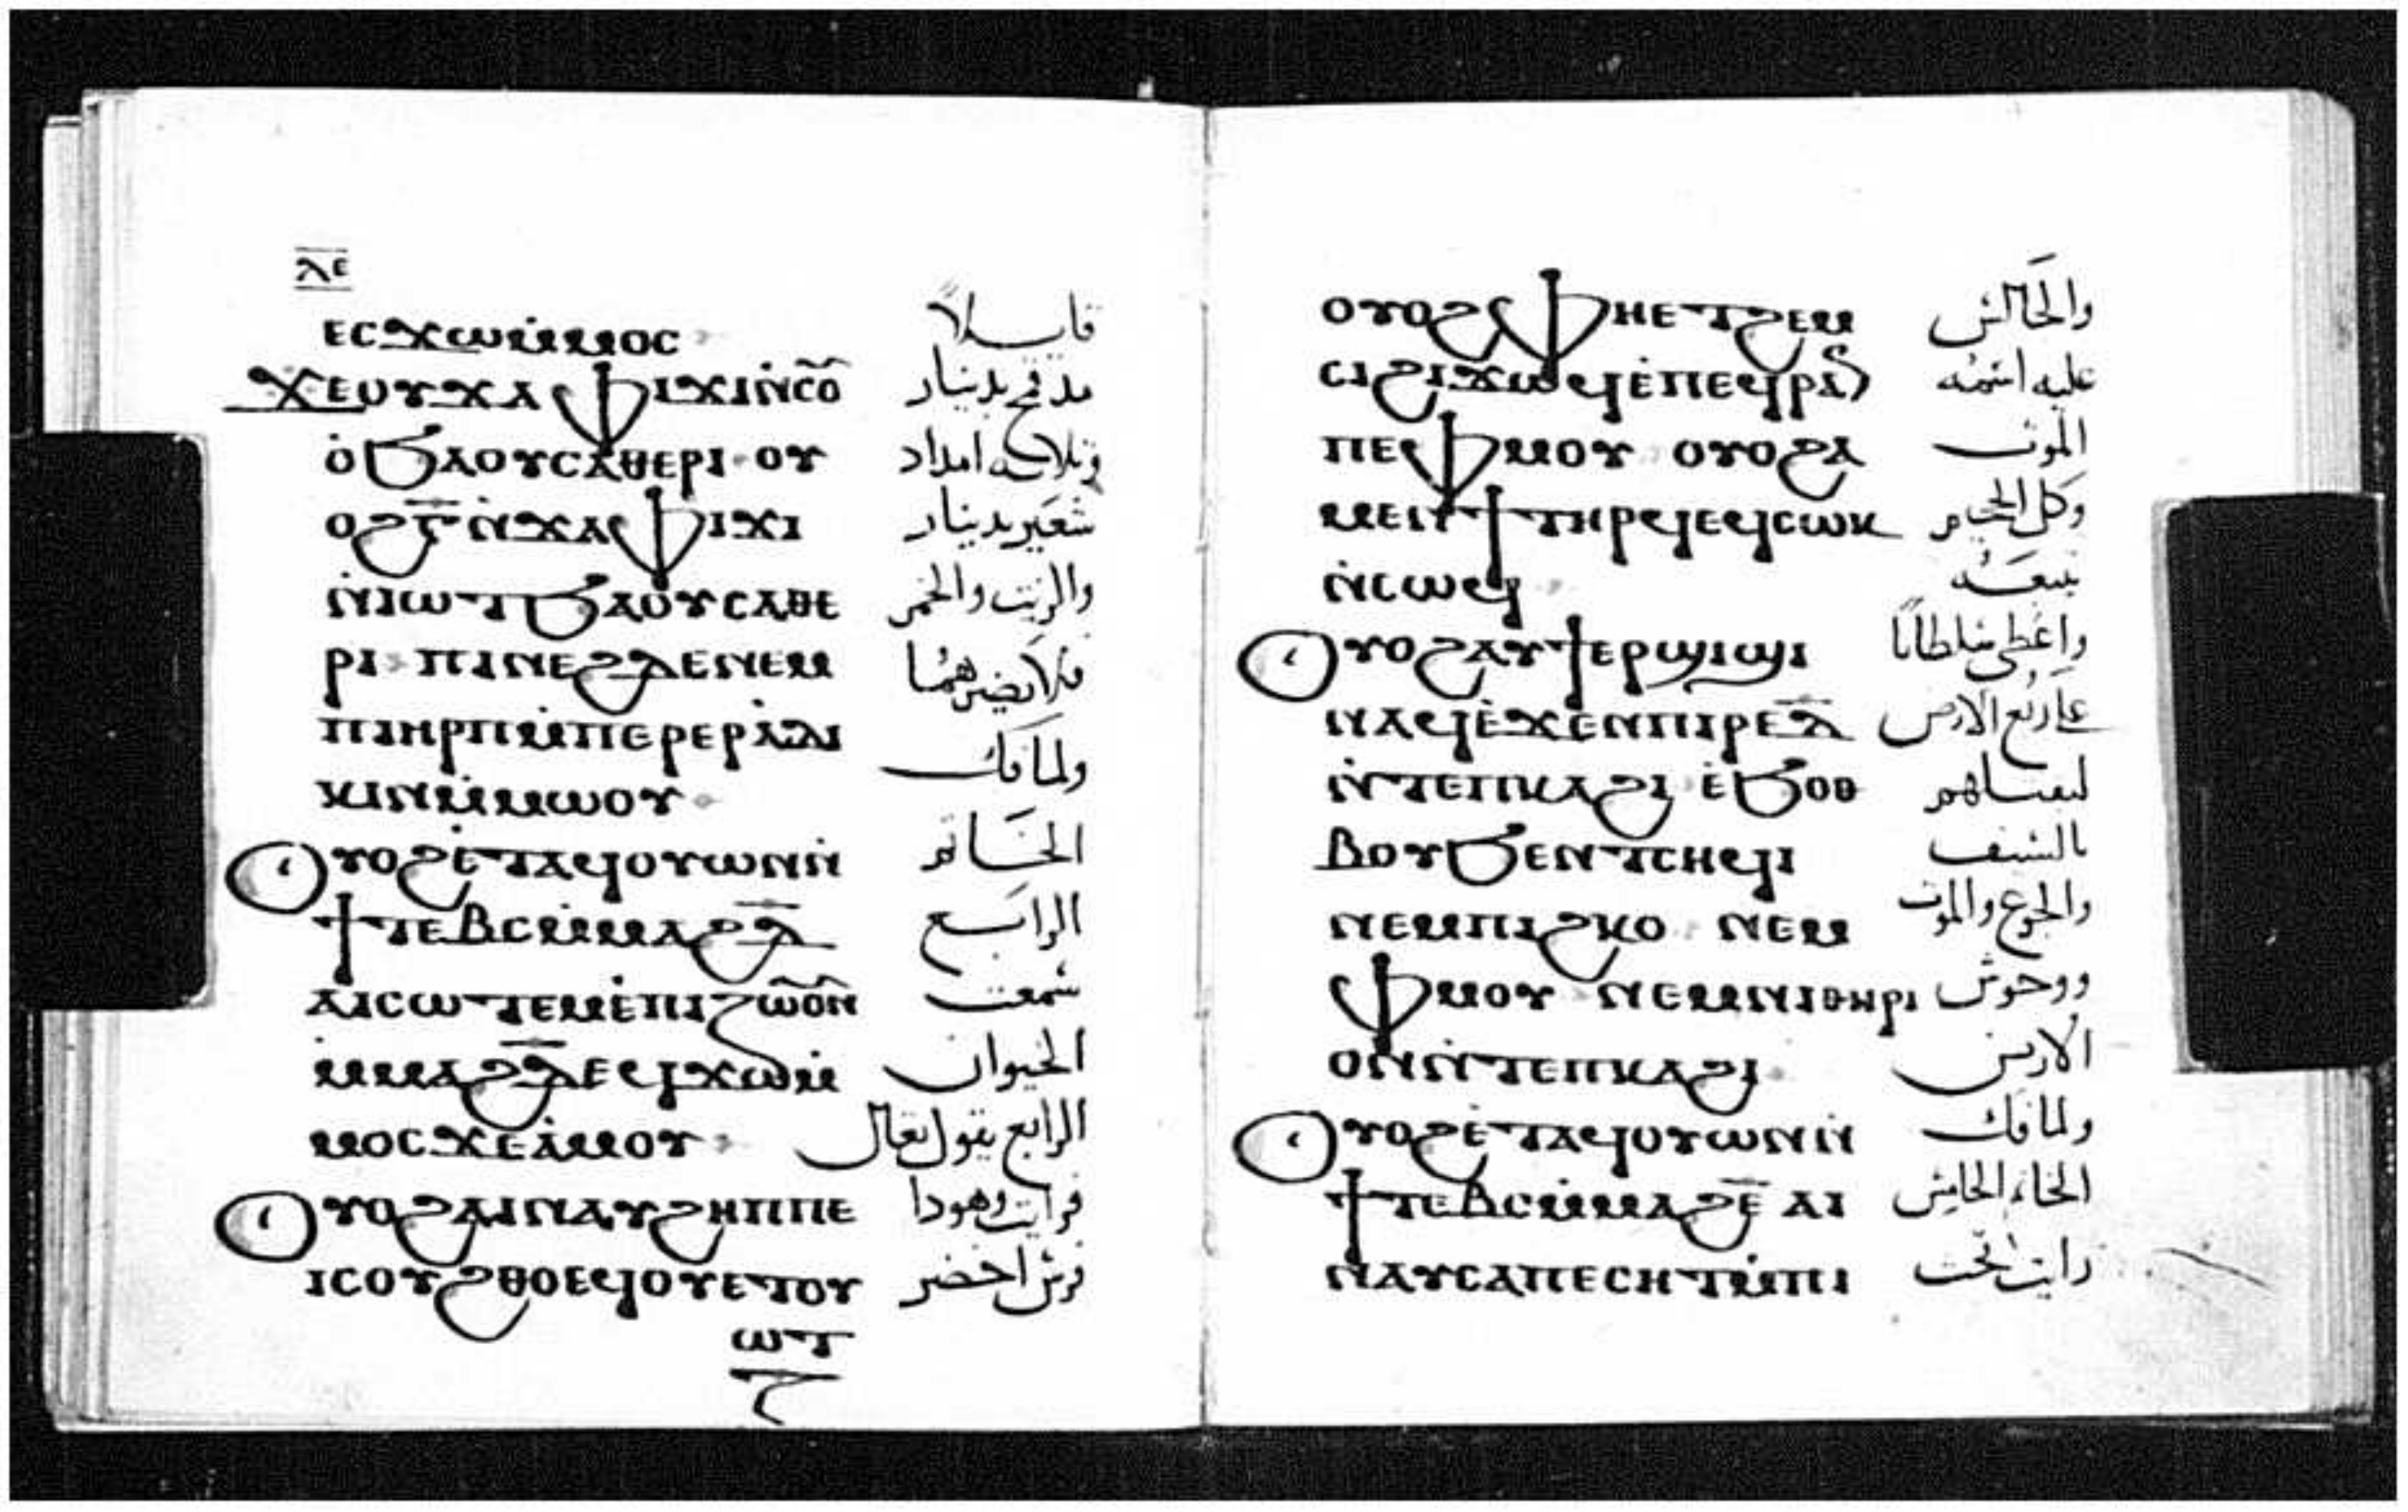 ⲗⲉ
ⲉⲥϫⲱⲙ̇ⲙⲟⲥ قايلاً
ϫⲉⲟⲩϫⲁⲫⲓϫⲓⲛ̇ⲥⲟ̃ مد قمح بدينار
ⲟ̇ϧⲁⲟⲩⲥⲁⲑⲉⲣⲓ ⲟⲩ وثلاثه امداد
ⲟϩⲅ̅ⲛ̇ϫⲁⲫⲓϫⲓ شعير بدينار
ⲛ̇ⲓⲱⲧϧⲁⲟⲩⲥⲁⲑⲉ والزيت والخمر
ⲣⲓ ⲡⲓⲛⲉϩⲇⲉⲛⲉⲙ فلا تضرهما
ⲡⲓⲏⲣⲡⲙ̇ⲡⲉⲣⲉⲣⲁ̇ⲇⲓ ولما فك
ⲕⲓⲛⲙ̇ⲙⲱⲟⲩ الخاتم
ⲟⲩⲟϩⲉ̇ⲧⲁϥⲟⲩⲱⲛⲛ̇ الرابع
ϯⲧⲉⲃⲥⲙ̇ⲙⲁϩⲇ̅ سمعت
ⲁⲓⲥⲱⲧⲉⲙⲉ̇ⲡⲓⲍⲱ̃ⲟ̃ⲛ الحيوان
ⲙ̇ⲙⲁϩⲇ̅ⲉϥϫⲱⲙ̇ الرابع يقول تعال
ⲙⲟⲥϫⲉⲁ̇ⲙⲟⲩ فرايت وهوذا
ⲟⲩⲟϩⲁⲓⲛⲁⲩϩⲏⲡⲡⲉ فرس اخضر
ⲓⲥⲟⲩϩⲑⲟⲉϥⲟⲩⲉⲧⲟⲩ
ⲱⲧ
ⲟⲩⲟϩⲫⲏⲉⲧϩⲉⲙ والجالس
ⲥⲓϩⲓϫⲱϥⲉ̇ⲡⲉϥⲣⲁⲛ عليه اسمه
ⲡⲉⲫⲙⲟⲩ ⲟⲩⲟϩⲁ الموت
ⲙⲉⲛϯⲧⲏⲣϥⲉϥⲥⲱⲕ وكل الجحيم
ⲛ̇ⲥⲱϥ يتبعه
ⲟⲩⲟϩⲁⲩϯⲉⲣϣⲓϣⲓ واعطي سلطانا
ⲛⲁϥⲉ̇ϫⲉⲛⲡⲓⲣⲉⲇ̅ علي ربع الارض
ⲛ̇ⲧⲉⲡⲕⲁϩⲓ ⲉ̇ϧⲟⲑ ليقتلهم
ⲃⲟⲩϧⲉⲛⲧⲥⲏϥⲓ بالسيف
ⲛⲉⲙⲡⲓϩⲕⲟ ⲛⲉⲙ والجوع والموت
ⲫⲙⲟⲩ ⲛⲉⲙⲛⲓⲑⲏⲣⲓ ووحوش
ⲟⲛⲛ̇ⲧⲉⲡⲕⲁϩⲓ الارض
ⲟⲩⲟϩⲉ̇ⲧⲁϥⲟⲩⲱⲛⲛ̇ ولما فك
ϯⲧⲉⲃⲥⲙ̇ⲙⲁϩⲉ̅ ⲁⲓ الخاتم الخامس
ⲛⲁⲩⲥⲁⲡⲉⲥⲏⲧⲙ̇ⲡⲓ رايت تحت